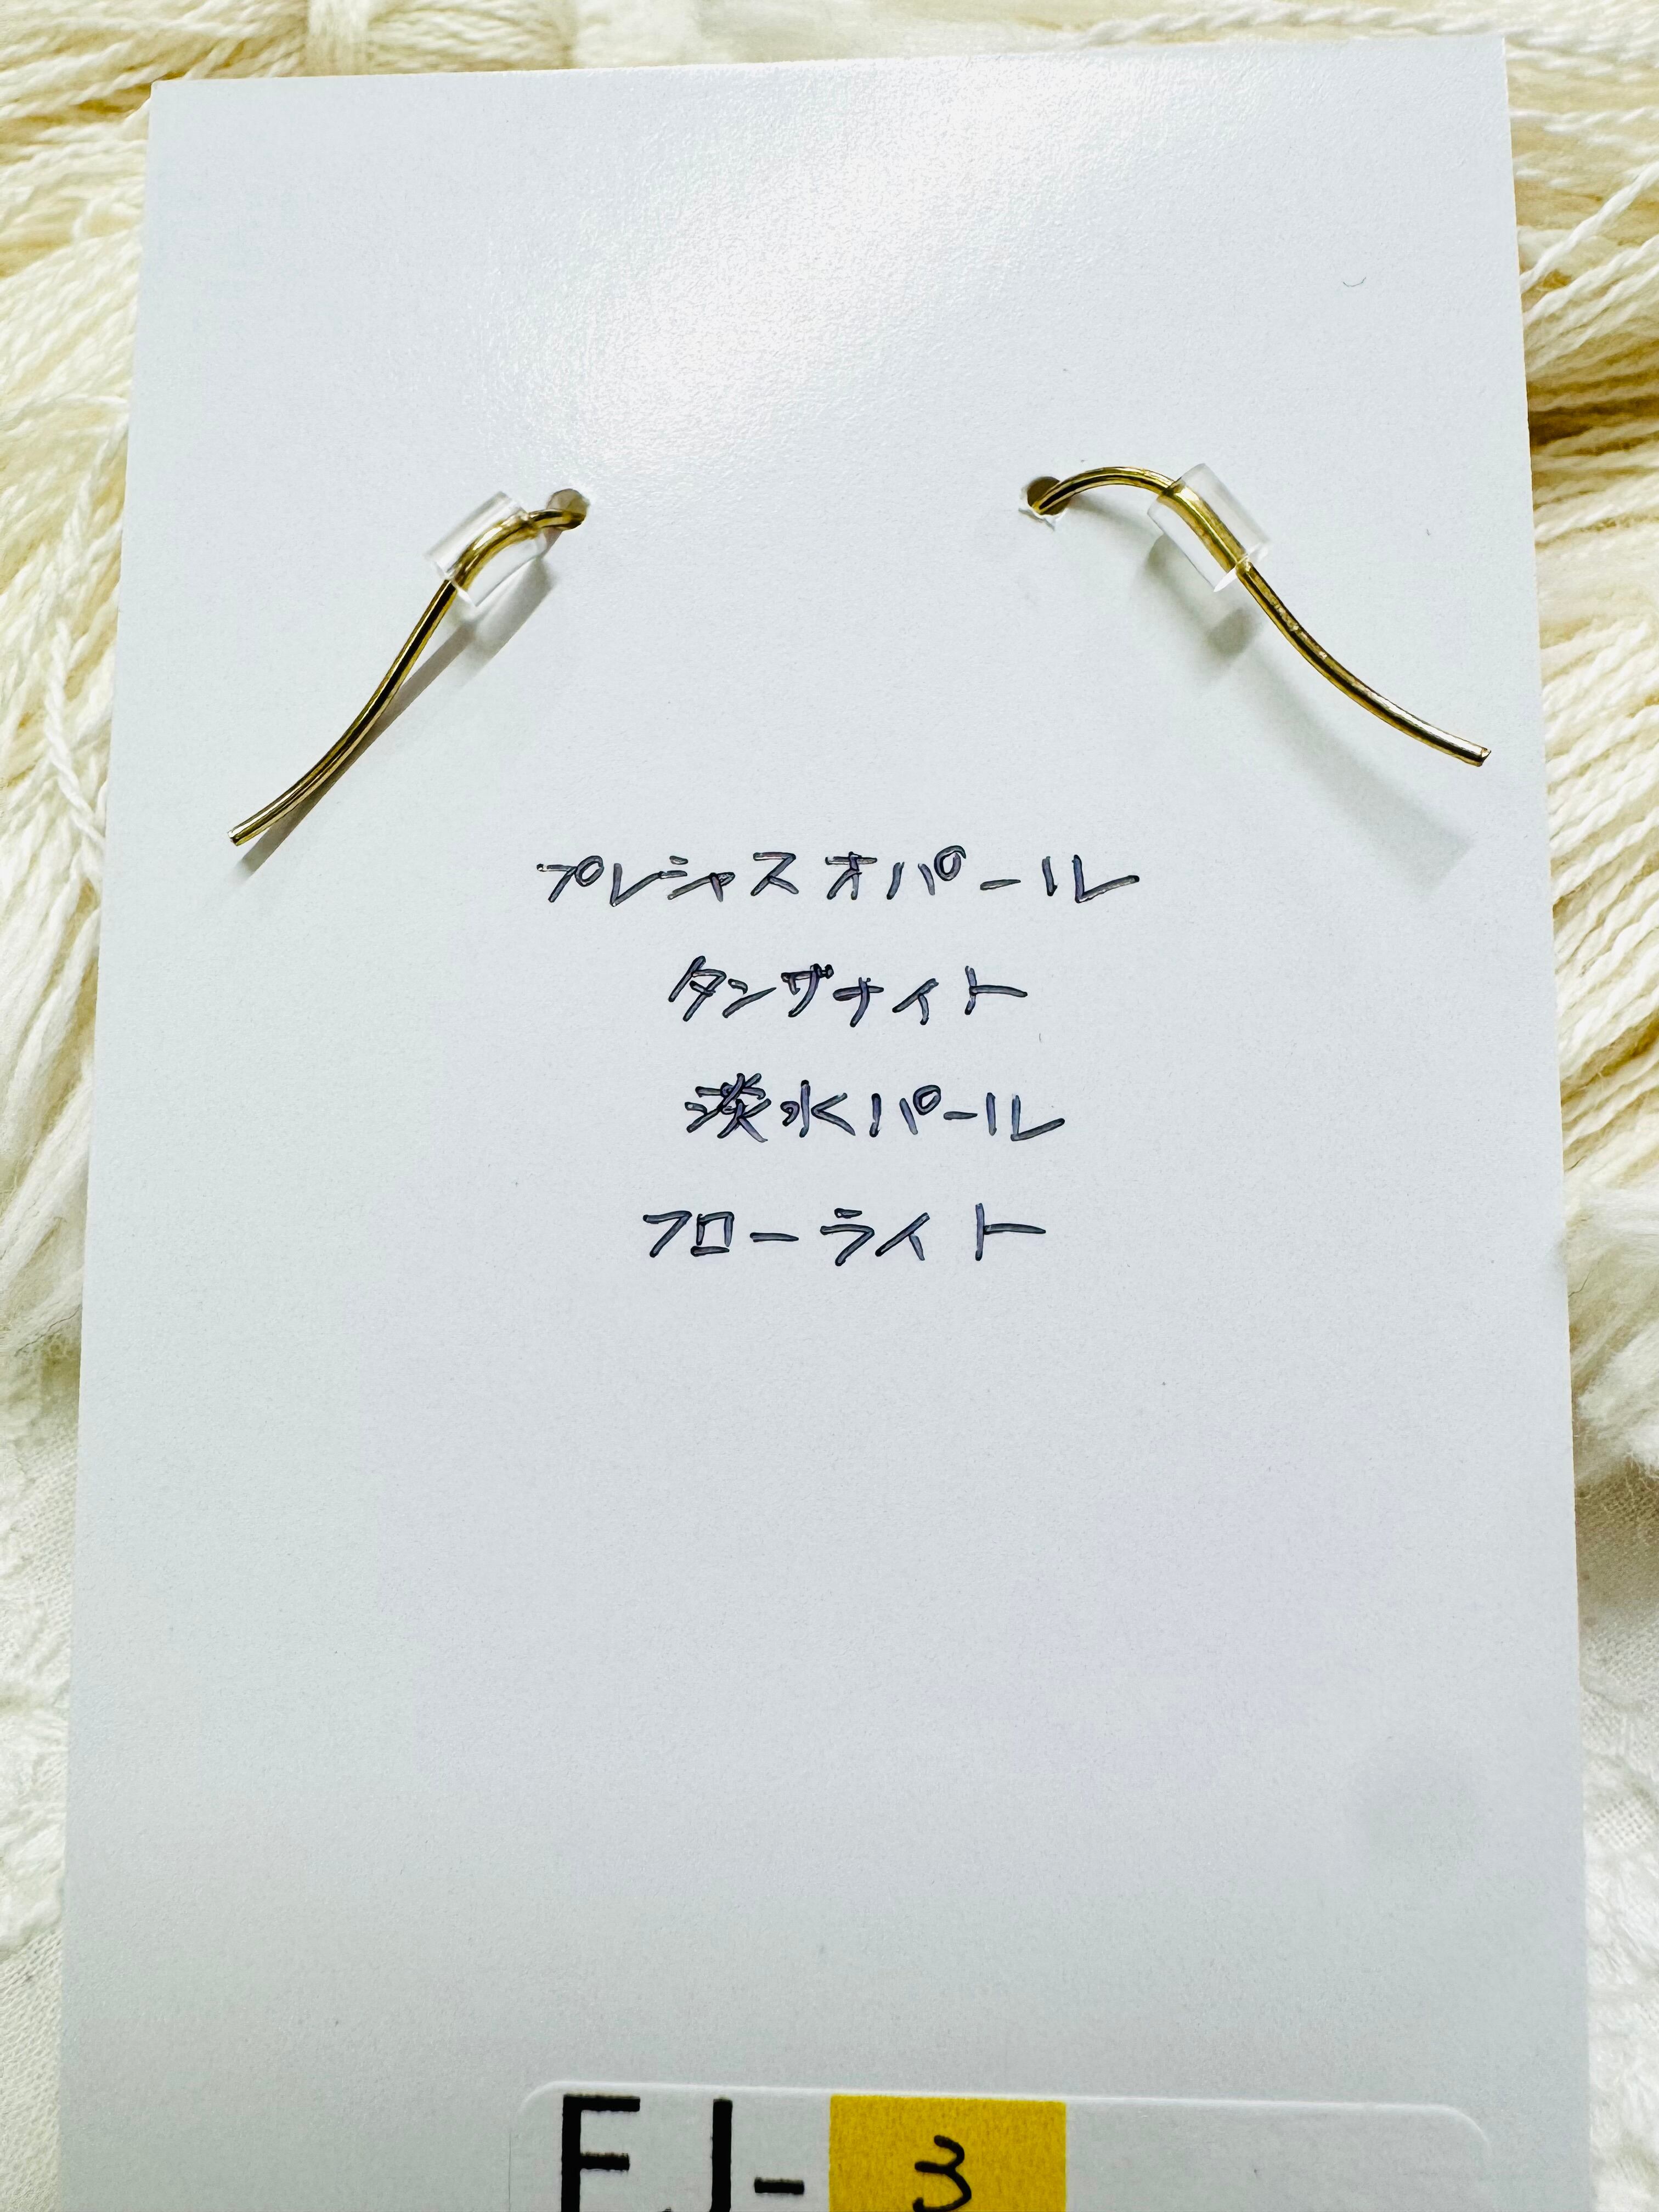 プレシャスオパール
タンザナイト
淡水パール
フローライト
FJ-3